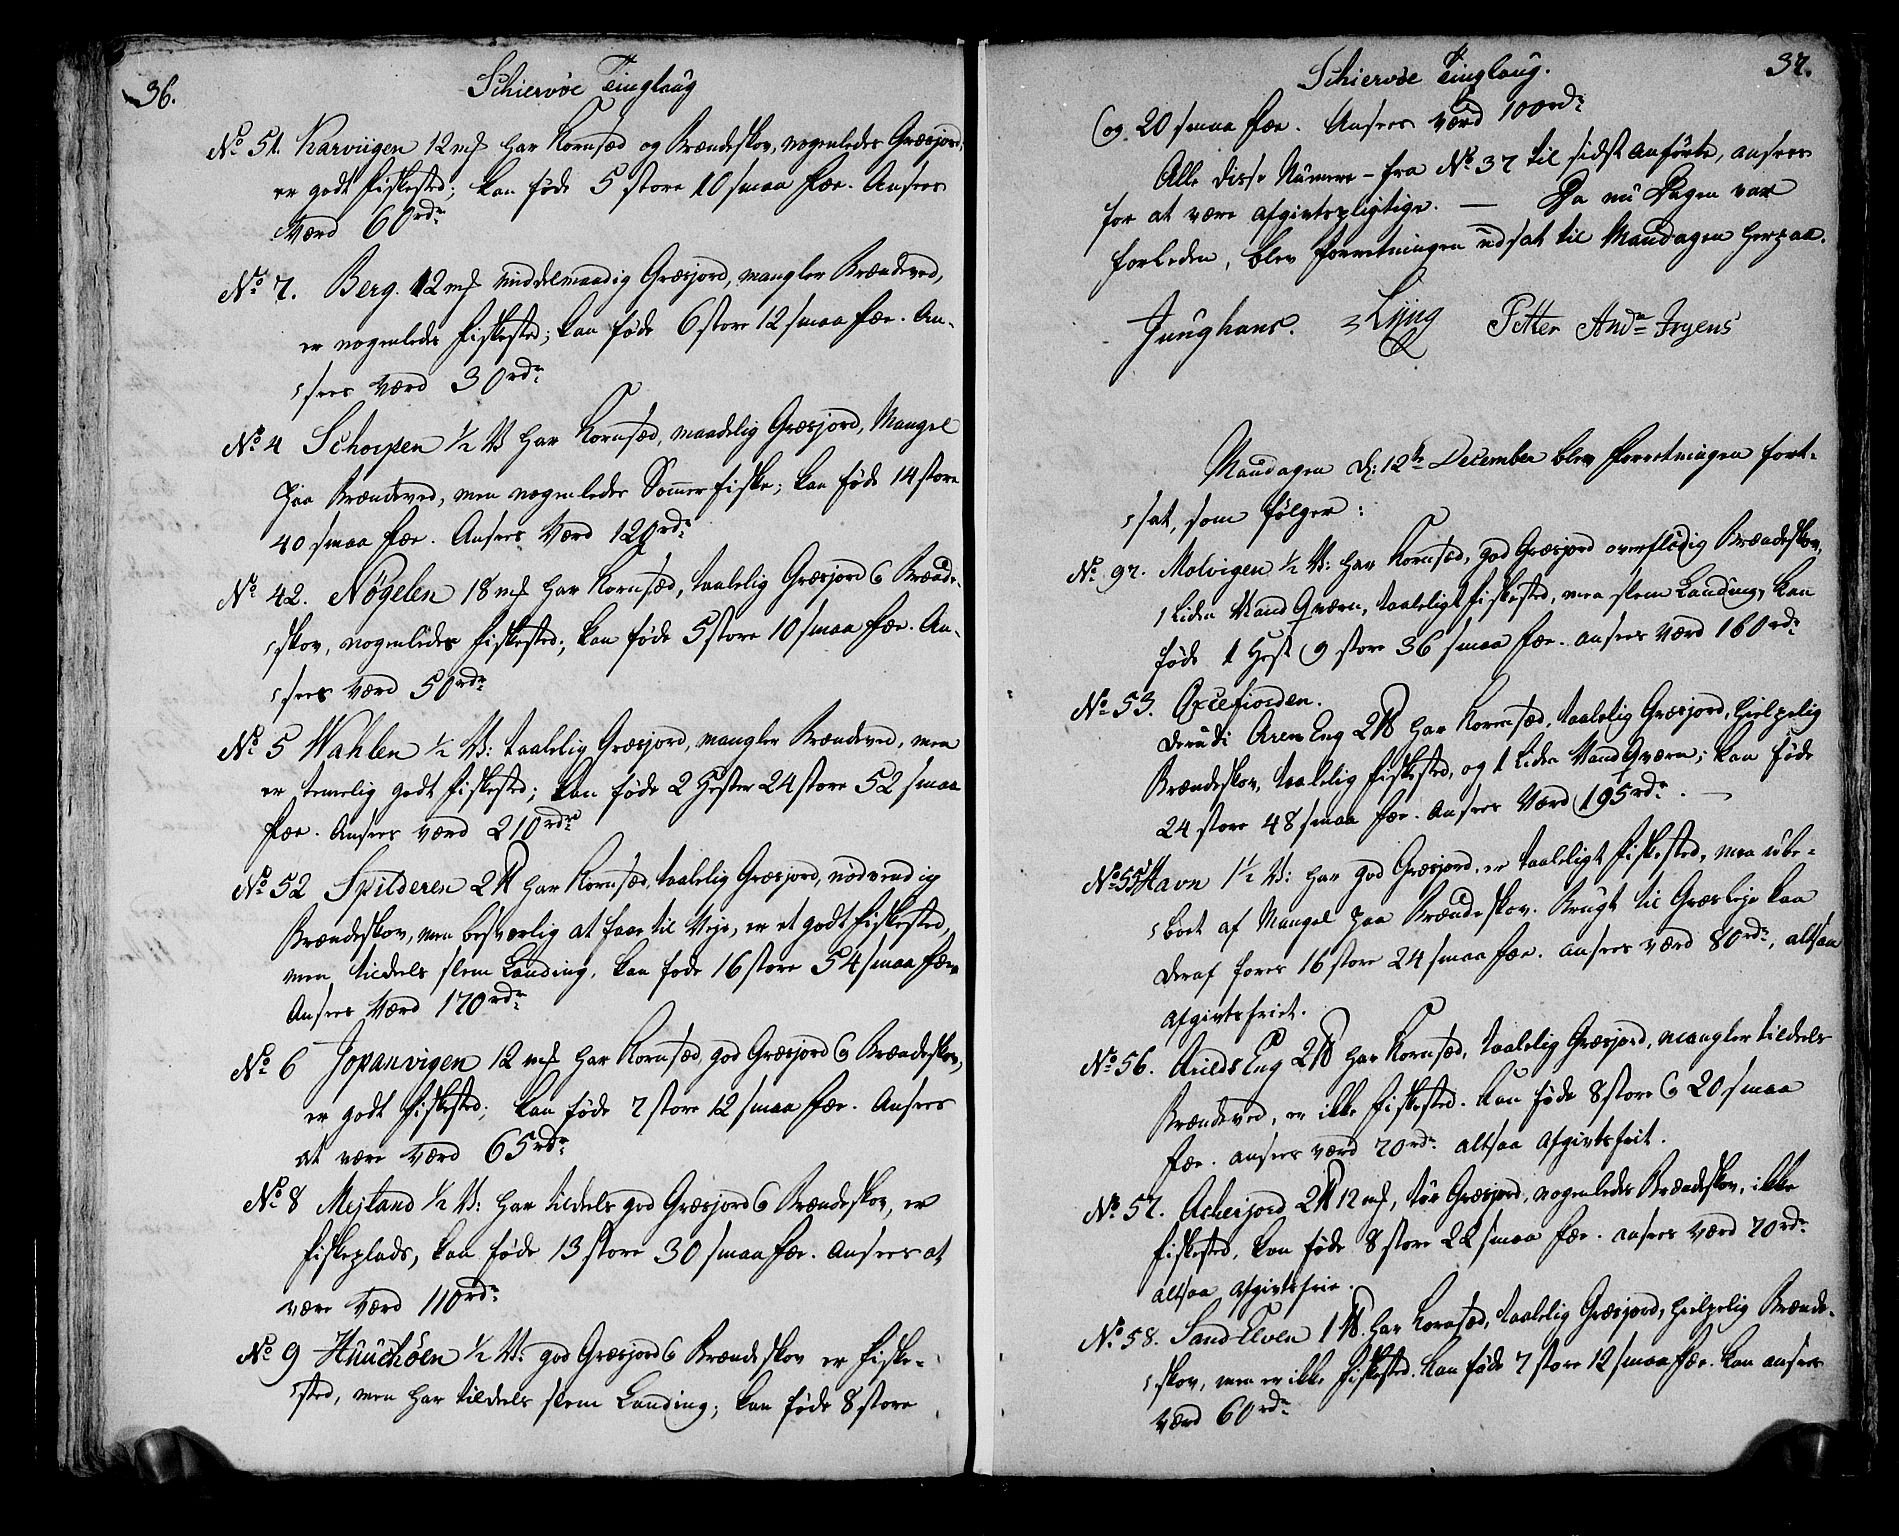 36.
Schiervøe Tinglaug
No 51. Karviigen 12 mk har Kornsæd og Brændeskov, nogenledes Græsjord,
er godt Fiskested; kan føde 5 store 10 smaa Fæe. Ansees
Værd 60 rdr
No 7. Berg. 12 mk middelmaadig Græsjord, mangler Brændeved,
er nogenledes Fiskested; kan føde 6 store 12 smaa Fæe. An-
sees Værd 30 rdr
No 4 Schorpen ½ V har Kornsæd, maadelig Græsjord, Mangel
paa Brændeved, men nogenledes Sommerfiske; kan føde 14 store
40 smaa Fæe. Ansees Værd 120 rdr
No 42. Nøgelen 18 mk har Kornsæd, taalelig Græsjord & Brænde-
skov, nogenledes Fiskested; kan føde 5 store 10 smaa Fæe. An-
sees Værd 50 rdr
No 5 Wahlen ½ V: taalelig Græsjord, mangler Brændeved, men
er temelig godt Fiskested; kan føde 2 Hester 24 store 52 smaa
Fæe. Ansees Værd 210 rdr
No 52 Spilderen 2 ℔ har Kornsæd, taalelig Græsjord, nødvendig
Brændeskov, men besværlig at faae til Veje, er et godt Fiskested,
men tildeels slem Landing, kan føde 16 store 54 smaa Fæe
Ansees Værd 170 rdr
No 6 Jopanvigen 12 mk har Kornsæd, god Græsjord & Brændeskov,
er godt Fiskested; kan føde 7 store 12 smaa Fæe. Ansees
at være Værd 65 rdr
No 8 Mejland ½ V: har tildeels god Græsjord & Brændeskov, er
Fiskeplads, kan føde 13 store 30 smaa Fæe. Ansees at
være Værd 110 rdr
No 9 Huuchøen ½ V: god Græsjord & Brændeskov er Fiske-
sted, men har tildeels slem Landing; kan føde 8 store
37.
Schiervøe Tinglaug.
og 20 smaa Fæe. Ansees Værd 100 rdr
Alle disse Numere - fra No 37 til sidst anførte, ansees
for at være afgivtspligtige. — Da nu Dagen var
forleden, blev Forretningen udsat til Mandagen herpaa.
Junghans. Lyng Petter Andr Irgens
Mandagen d: 12te December blev Forretningen fort-
sat, som følger:
No 97. Molvigen ½ V: har Kornsæd, god Græsjord overflødig Brændeskov,
1 liden Vand Qværn, taaleligt Fiskested, men slem Landing, kan
føde 1 Hest 9 store 36 smaa Fæe. ansees Værd 160 rdr
No 53. Oxefiorden.
Deraf i Arens Eng 2 ℔ har Kornsæd, taalelig Græsjord, hielpelig
Brændeskov, taalelig Fiskested, og 1 liden Vand Qværn; kan føde
24 store 48 smaa Fæe. ansees Værd 195 rdr. —
No 55 Havn 1½ V: har god Græsjord, er taaleligt Fiskested, men ube-
boet af Mangel paa Brændeskov. Brugt til Græsleje kan
deraf fores 16 store 24 smaa Fæe. ansees Værd 80 rdr, altsaa
afgivtsfriet.
No 56. Arilds Eng 2 ℔ har Kornsæd, taalelig Græsjord, mangler tildeels
Brændeved, er ikke Fiskested. Kan føde 8 store & 20 smaa
Fæe. ansees Værd 70 rdr altsaa afgivtsfrit.
No 57. Acherjord 2 ℔ 12 mk, tør Græsjord, nogenledes Brændeskov, ikke
Fiskested, kan føde 8 store 22 smaa Fæe. ansees Værd 70 rdr
altsaa afgivtsfrie.
No 58. Sand Elven 1 ℔. har Kornsæd, taalelig Græsjord, hielpelig Brænde-
skov, men er ikke Fiskested. Kan føde 7 store 12 smaa Fæe. kan ansees
Værd 60 rdr